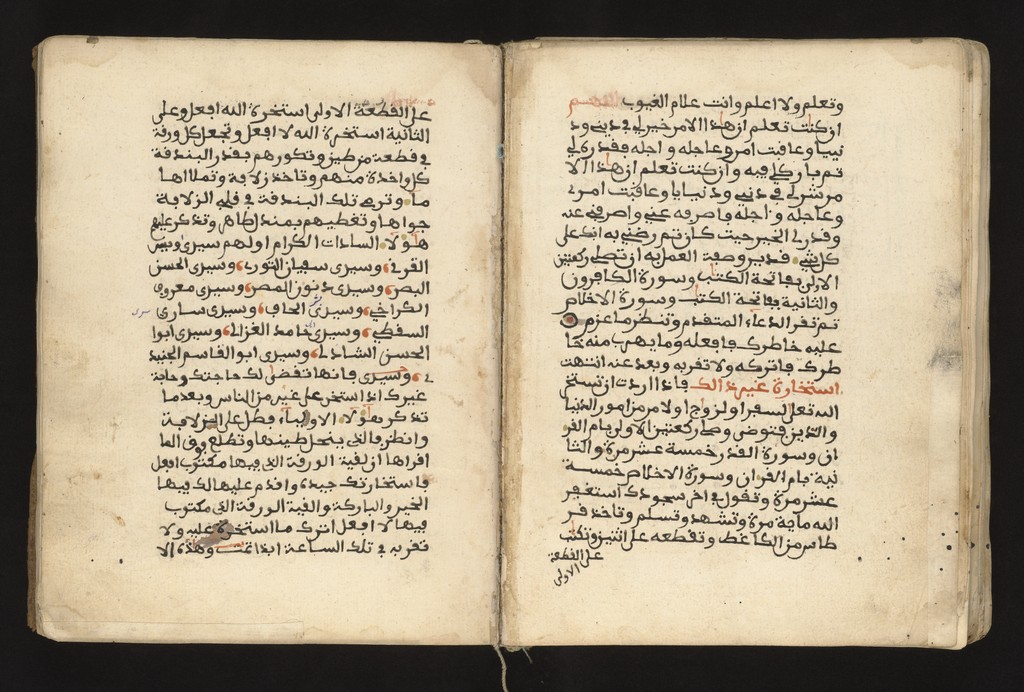 وتعلم ولا اعلم وانت علام الغيوب اللهم
ان كنت تعلم ان هذا الامر خير لي في ديني ود
نييا وعاقبت امري وعاجله واجله فقدره لي
ثم بارك لي فيه وان كنت تعلم ان هذا الا
مر شر لي في ديني ودنيايا وعاقبت امري
وعاجله واجله فاصرفه عني واصرفني عنه
وقدر لي الخير حيث كان ثم رضني به انك على
كل شيء قدير وصفة العمل به ان تصلي ركعتين
الاولى بفاتحة الكتب وسورة الكافرون
والثانية بفاتحة الكتب وسورة الاخلاص
ثم تقر الدعاء المتقدم وتنظر ما عزم
عليه خاطرك فافعله وما يهرب منه خا
طرك فاتركه ولا تقربه وبعد عنه انتهت
استخارة غير ذالك فاذا اردت ان تستخر
الله تعلى لسفر او لزواج او لامر من امور الدنيا
والدين فتوضى وصل ركعتين الاولى بام القر
ان وسورة القدر خمسة عشر مرة والثا
نية بام القران وسورة الاخلاص خمسة
عشر مرة وتقول في اخر سجودك استغفر
الله ماية مرة وتشهد وتسلم وتاخذ قر
طاس من الكاغط وتقطعه على اثنين وتكتب
على القطعة
الاولى
على القطعة الاولى استخرة الله افعل وعلى
الثانية استخرة الله لا افعل وتجعل كل ورقة
في قطعة من طين وتكورهم بقدر البندقة
كل واحدة منهم وتاخذ زلابة وتملااها
ماء وترمي تلك البندقة في قلب الزلابة
جواها وتغطيهم بمنديل طاهر وتذكر عليهم
هؤلاء السادات الكرام اولهم سيدي ويس
القرني وسيدي سفيان الثوري وسيدي الحسن
البصري وسيدي ذنون المصري وسيدي معروف
الكراخي وسيدي الحافي وسيدي ساري
السقطي وسيدي حامد الغزالي وسيدي ابوا
الحسن الشاذلي وسيدي ابو القاسم الجنيد
وسيدي فانها تقضى لك حاجتك وحاجة
غيرك اذا استخر على غيره من الناس وبعد ما
تذكر هؤلاء الاولياء فطل على الزلابة
وانظر فالذي ينحل طينها وتطلع فوق الما
اقراها ان لقية الورقة التي فيها مكتوب افعل
فاستخارتك جيدة واقدم عليها لك فيها
الخير والباركة والقية الورقة التي مكتوب
فيها لا افعل اترك ما استخرة عليه ولا
تقربه في تلك الساعة ابدا وهذه الا